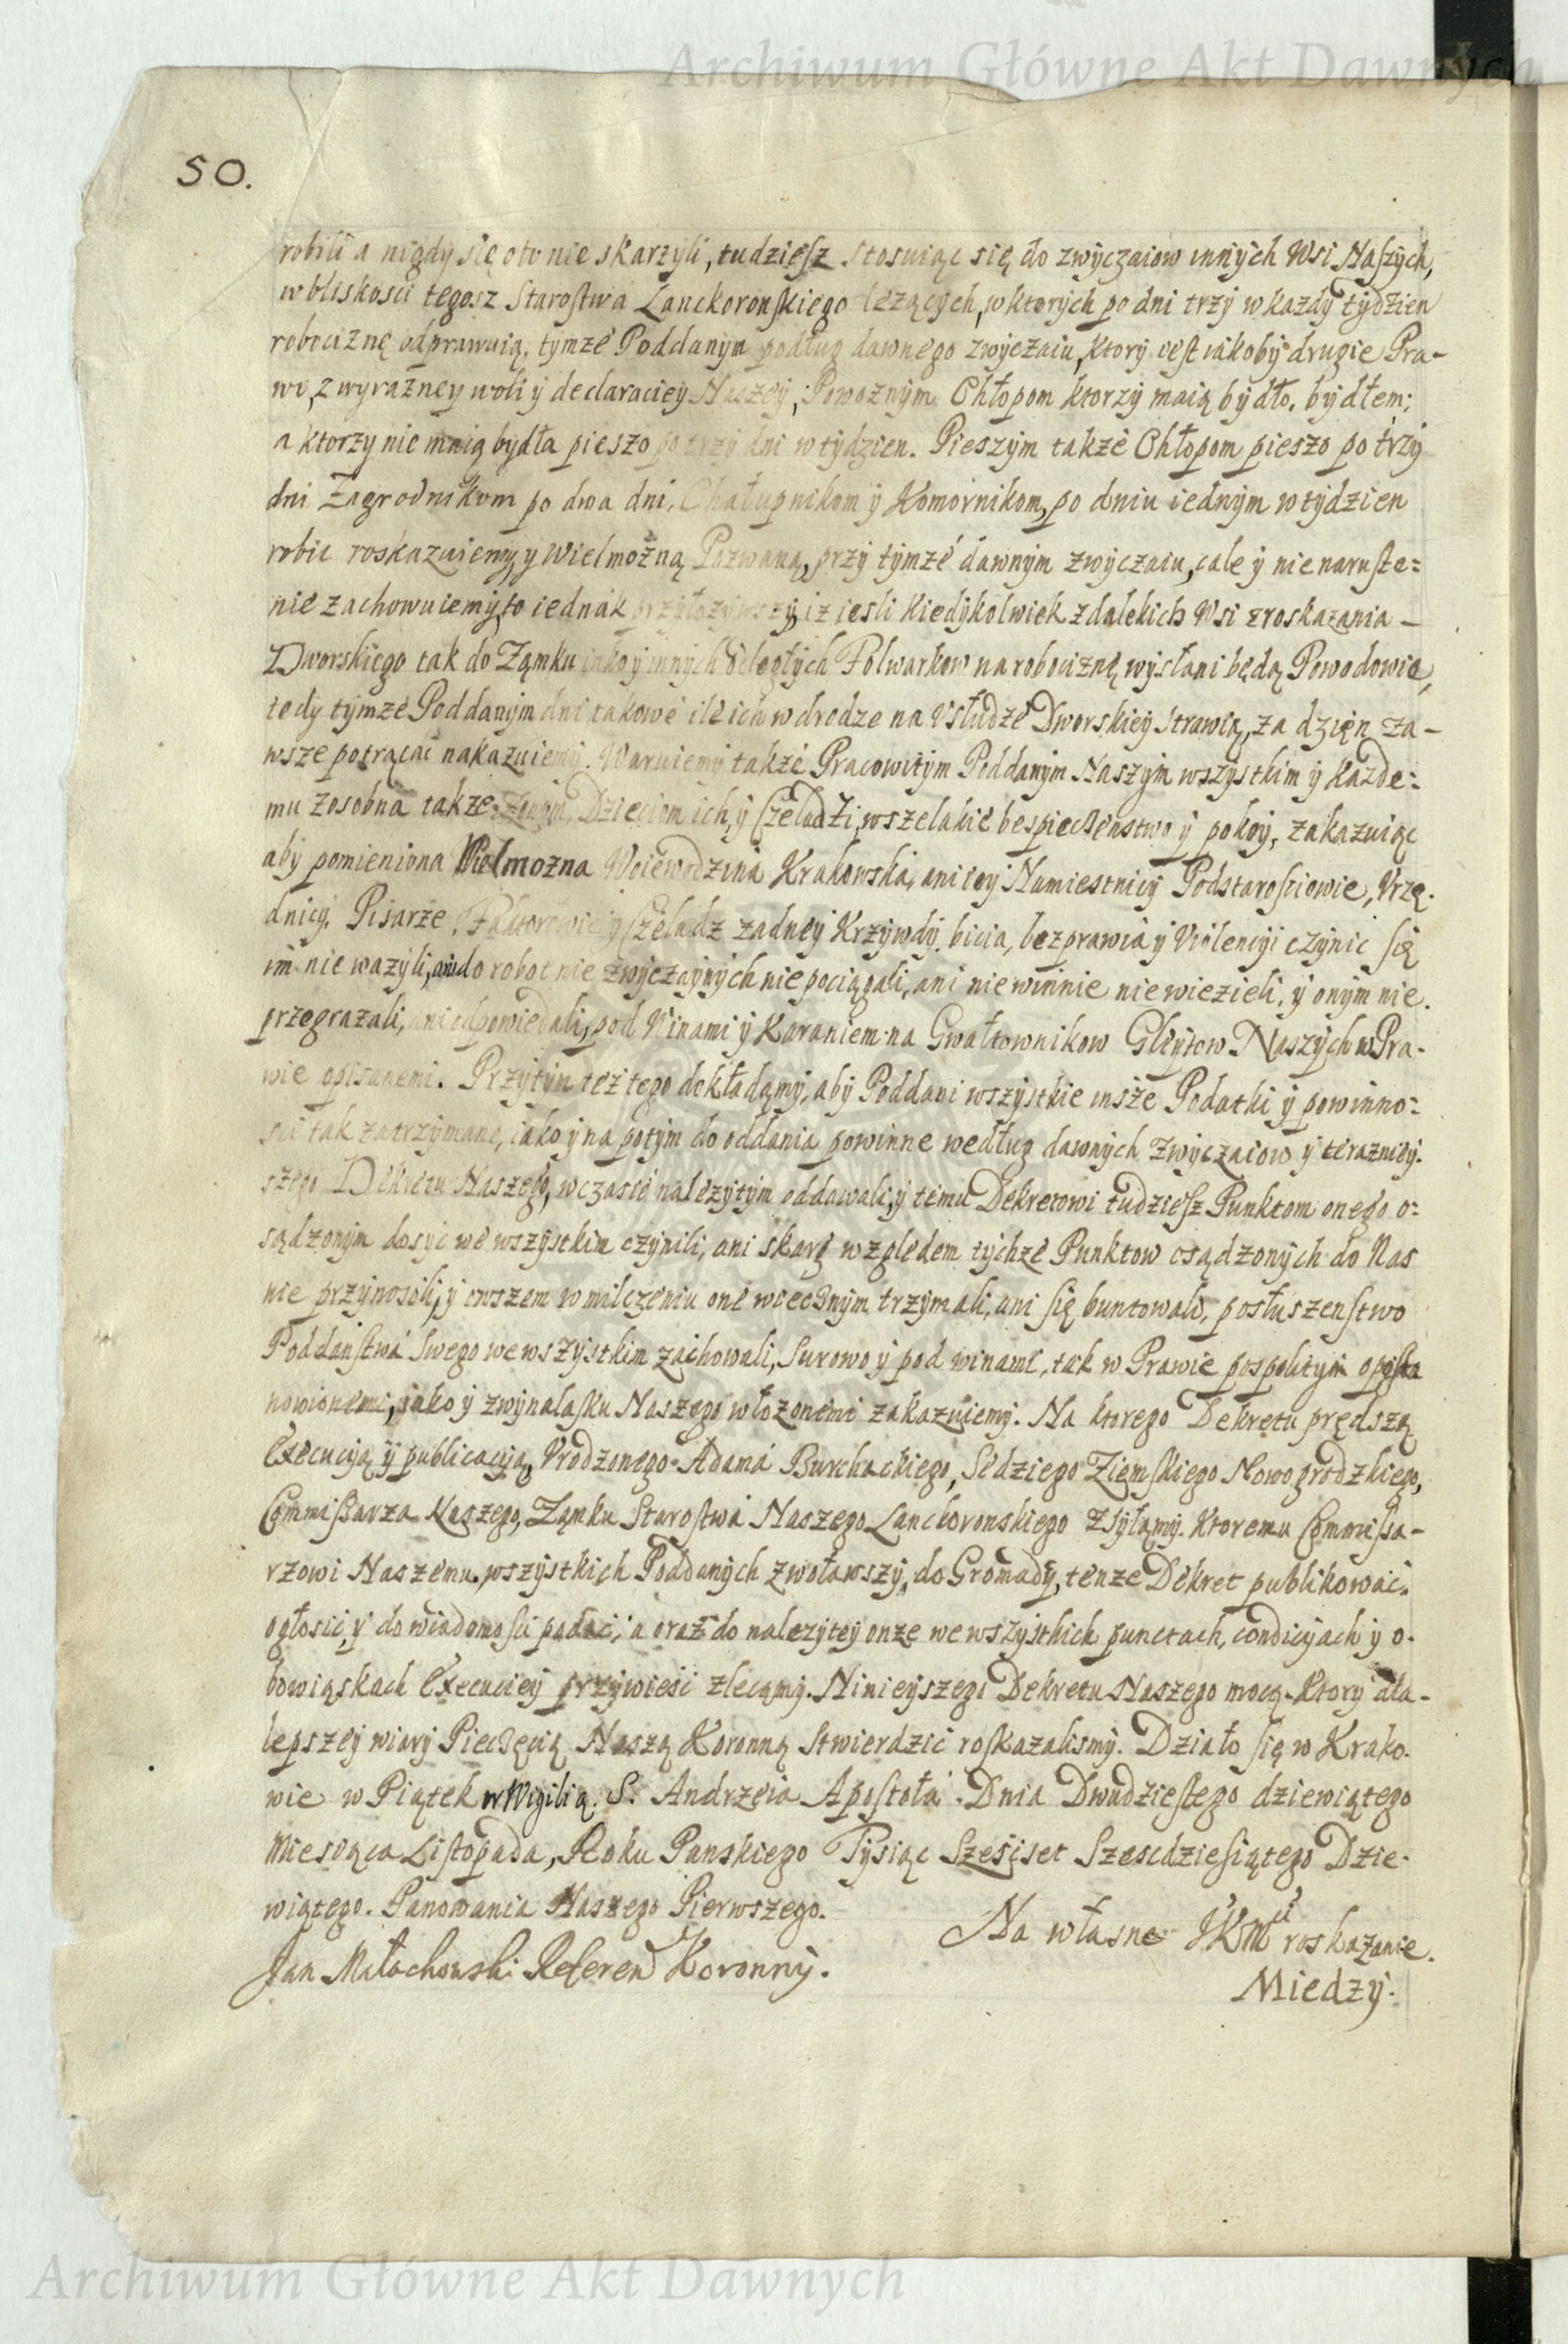 Archiwum Główne Akt Dawnych
50.
robili a nigdy się oto nie skarżyli, tudzieſz stosuiąc się do zwyczaiow innych Wsi Naſzych,
w bliskosci tegosz Staroſtwa Lanckoronſkiego leżących, w ktorych po dni trzy w kazdy tydzien
robociznę odprawuią, tymze Poddanym podług dawnego zwyczaiu, ktory ieſt iakoby drugie Pra-
wo, z wyrazney woli y declaraciey Naszey, Powoznym Chłopom ktorzy maią bydło, bydłem;
a ktorzy nie maią bydła pieszo po trzy dni w tydzien. Pieszym takze Chłopom pieszo po trzy
dni Zagrodnikom po dwa dni, Chałupnikom y Komornikom, po dniu iednym w tydzien
robic roskazuiemy, y Wielmozną Pozwaną, przy tymze dawnym zwyczaiu, cale y nienaruſze=
nie zachowuiemy, to iednak przyłozywszy, iz iesli kiedykolwiek z dalekich Wsi z roskazania -
Dworskiego tak do Zamku iako y innych odległych Folwarkow na robociznę wysłani będą Powodowie,
tedy tymze Poddanym dni takowe ile ich w drodze na Vsłudze Dworskiey strawią, za dzien za-
wsze potrącac nakazuiemy. Waruiemy takze Pracowitym Poddanym Naszym wszystkim y kazde=
mu zosobna takze Zonom, Dzieciom ich, y Czeladzi, wszelakie bespieczenstwo y pokoy, zakazuiąc
aby pomieniona Wielmozna Woiewodzina Krakowska, ani iey Namiestnicy Podstaroſciowie, Vrzę-
dnicy, Pisarze, Faktorowie y Czeladz zadney Krzywdy, bicia, bezprawia y Violencyi czynic ſię
im nie wazyli, ani do robot nie zwyczaynych nie pociągali, ani niewinnie niewiezieli, y onym nie
przegrazali, ani odpowiedali, pod Winami y Karaniem na Gwałtownikow Gleytow Naszych w Pra-
wie opisanemi. Przytym tez tego dokładamy, aby Poddani wszystkie insze Podatki y powinno=
sci tak zatrzymane, iako y na potym do oddania powinne według dawnych zwyczaiow y teraznieÿ-
szego Dekretu Naszego, w czasie nalezytym oddawali, y temu Dekretowi tudzieſz Punktom onego o=
sądzonym dosyc we wszystkim czynili, ani skarg względem tychze Punktow osądzonych do Nas
nie przynosili, y owszem w milczeniu one wiecznym trzymali, ani ſię buntowali, posłuszenſtwo
Poddanſtwa Swego we wszystkim zachowali, Surowo y pod winami, tak w Prawie pospolitym opoſta
nowionemi, iako y z wynalaſku Naszego włozonemi zakazuiemy. Na ktorego Dekretu prędszą
Execucyą y publicacyą, Vrodzonego Adama Burchackiego, Sędziego Ziemſkiego Nowogrodzkiego,
Commiſsarza Naszego, Zamku Staroſtwa Naszego Lanckoronskiego Zsyłamy. Ktoremu Commiſsa-
rzowi Naszemu, wszystkich Poddanych zwoławszy, do Gromady, tenze Dekret publikowac,
ogłosic, y do wiadomosci podac, a oraz do nalezytey onze we wszystkich punctach, condicyach y o-
bowiąskach Execuciey przywiesc zlecamy. Ninieyszego Dekretu Naszego mocą. Ktory dla-
lepszey wiary Pieczęcią Naszą Koronną stwierdzic roſkazalismy. Działo się w Krako-
wie w Piątek w Wigilią S. Andrzeia Apoſtoła. Dnia Dwudzieſtego dziewiątego
Miesiąca Liſtopada, Roku Panskiego Tysiąc Szescset Szescdzieſiątego Dzie-
wiątego. Panowania Naszego Pierwszego.
Na własne JKMci roskazanie.
Jan Małachowski Referend Koronny.
Miedzy.
Archiwum Główne Akt Dawnych